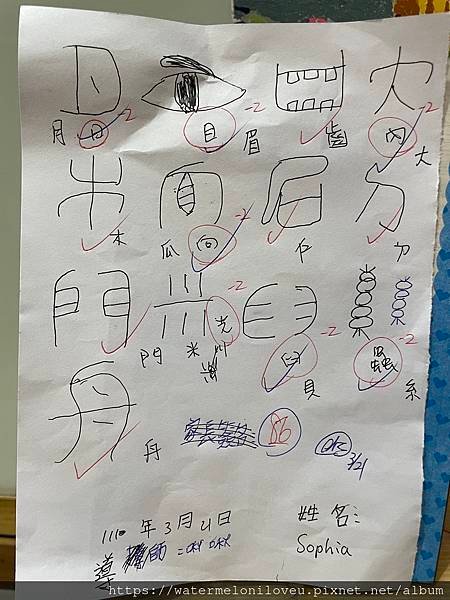 月 日 -2 目 -2 眉 齒 肉 -2 大
木 瓜 向 -2 仁 ㄉ
門 米 光 川 -2 臼 -2 貝 蟲 -2 糸
丹 86 OK 3/21
1110 年 3 月 21 日 姓 名:
導 師 = OK OK Sophia
https://watermeloniloveu.pixnet.net/album